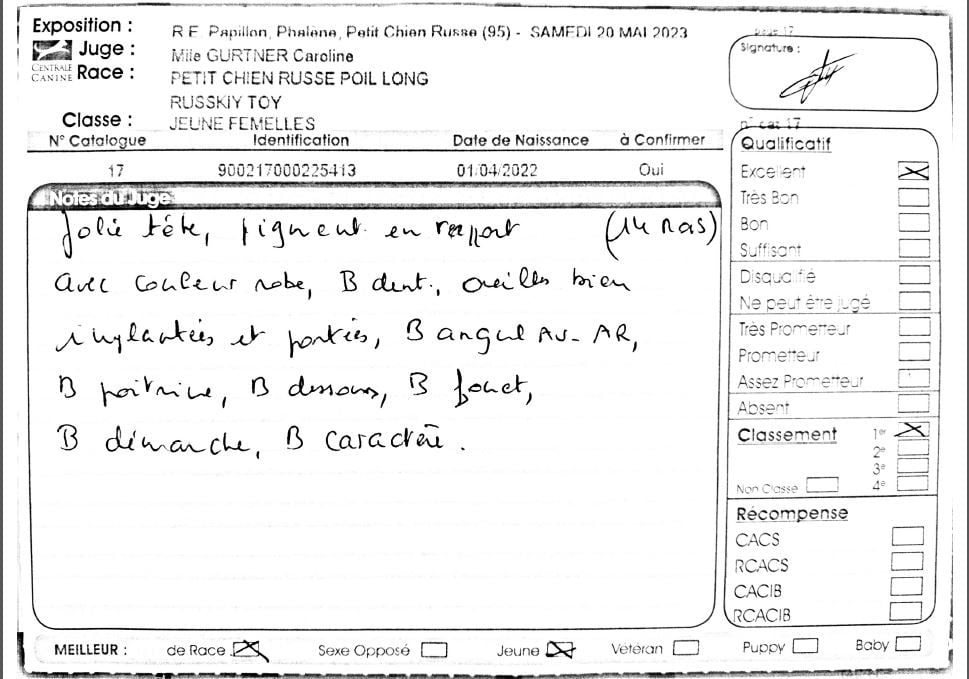 Exposition : R.E. Papillon, Phalène, Petit Chien Russe (95) - SAMEDI 20 MAI 2023
Juge : Mlle GURTNER Caroline
CENTRALE CANINE
Race : PETIT CHIEN RUSSE POIL LONG
RUSSKIY TOY
Classe : JEUNE FEMELLES
Signature :
N° Catalogue Identification Date de Naissance à Confirmer
17 900217000225413 01/04/2022 Oui
Notes du Juge
Jolie tête, pigment en rapport (14 mois)
avec couleur robe, B dent., oreilles bien
implantées et portées, B angul AV- AR,
B poitrine, B dessous, B fouet,
B démarche, B caractère.
n° cat 17
Qualificatif
Excellent
Très Bon
Bon
Suffisant
Disqualifié
Ne peut être jugé
Très Prometteur
Prometteur
Assez Prometteur
Absent
Classement 1er
2e
3e
Non Classé 4e
Récompense
CACS
RCACS
CACIB
RCACIB
MEILLEUR : de Race Sexe Opposé Jeune Vétéran Puppy Baby